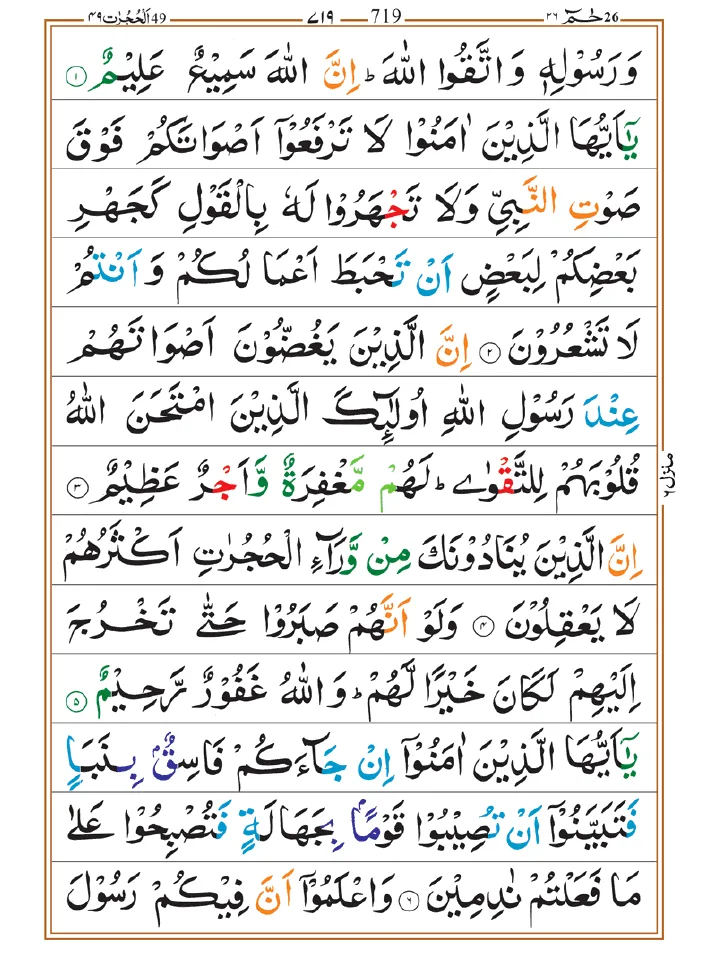 حٰمٓ 26 ٢٦ 719 ٧١٩ اَلْحُجُرٰت 49 ٤٩
وَرَسُوْلِهٖ وَاتَّقُوا اللّٰهَ ؕ اِنَّ اللّٰهَ سَمِيْعٌ عَلِيْمٌ ۝١
يٰۤاَيُّهَا الَّذِيْنَ اٰمَنُوْا لَا تَرْفَعُوْۤا اَصْوَاتَكُمْ فَوْقَ
صَوْتِ النَّبِيِّ وَلَا تَجْهَرُوْا لَهٗ بِالْقَوْلِ كَجَهْرِ
بَعْضِكُمْ لِبَعْضٍ اَنْ تَحْبَطَ اَعْمَالُكُمْ وَاَنْتُمْ
لَا تَشْعُرُوْنَ ۝٢ اِنَّ الَّذِيْنَ يَغُضُّوْنَ اَصْوَاتَهُمْ
عِنْدَ رَسُوْلِ اللّٰهِ اُولٰٓئِكَ الَّذِيْنَ امْتَحَنَ اللّٰهُ
قُلُوْبَهُمْ لِلتَّقْوٰى ؕ لَهُمْ مَّغْفِرَةٌ وَّاَجْرٌ عَظِيْمٌ ۝٣
اِنَّ الَّذِيْنَ يُنَادُوْنَكَ مِنْ وَّرَآءِ الْحُجُرٰتِ اَكْثَرُهُمْ
لَا يَعْقِلُوْنَ ۝٤ وَلَوْ اَنَّهُمْ صَبَرُوْا حَتّٰى تَخْرُجَ
اِلَيْهِمْ لَكَانَ خَيْرًا لَّهُمْ ؕ وَاللّٰهُ غَفُوْرٌ رَّحِيْمٌ ۝٥
يٰۤاَيُّهَا الَّذِيْنَ اٰمَنُوْۤا اِنْ جَآءَكُمْ فَاسِقٌۢ بِنَبَاٍ
فَتَبَيَّنُوْۤا اَنْ تُصِيْبُوْا قَوْمًۢا بِجَهَالَةٍ فَتُصْبِحُوْا عَلٰى
مَا فَعَلْتُمْ نٰدِمِيْنَ ۝٦ وَاعْلَمُوْۤا اَنَّ فِيْكُمْ رَسُوْلَ
منزل ٦